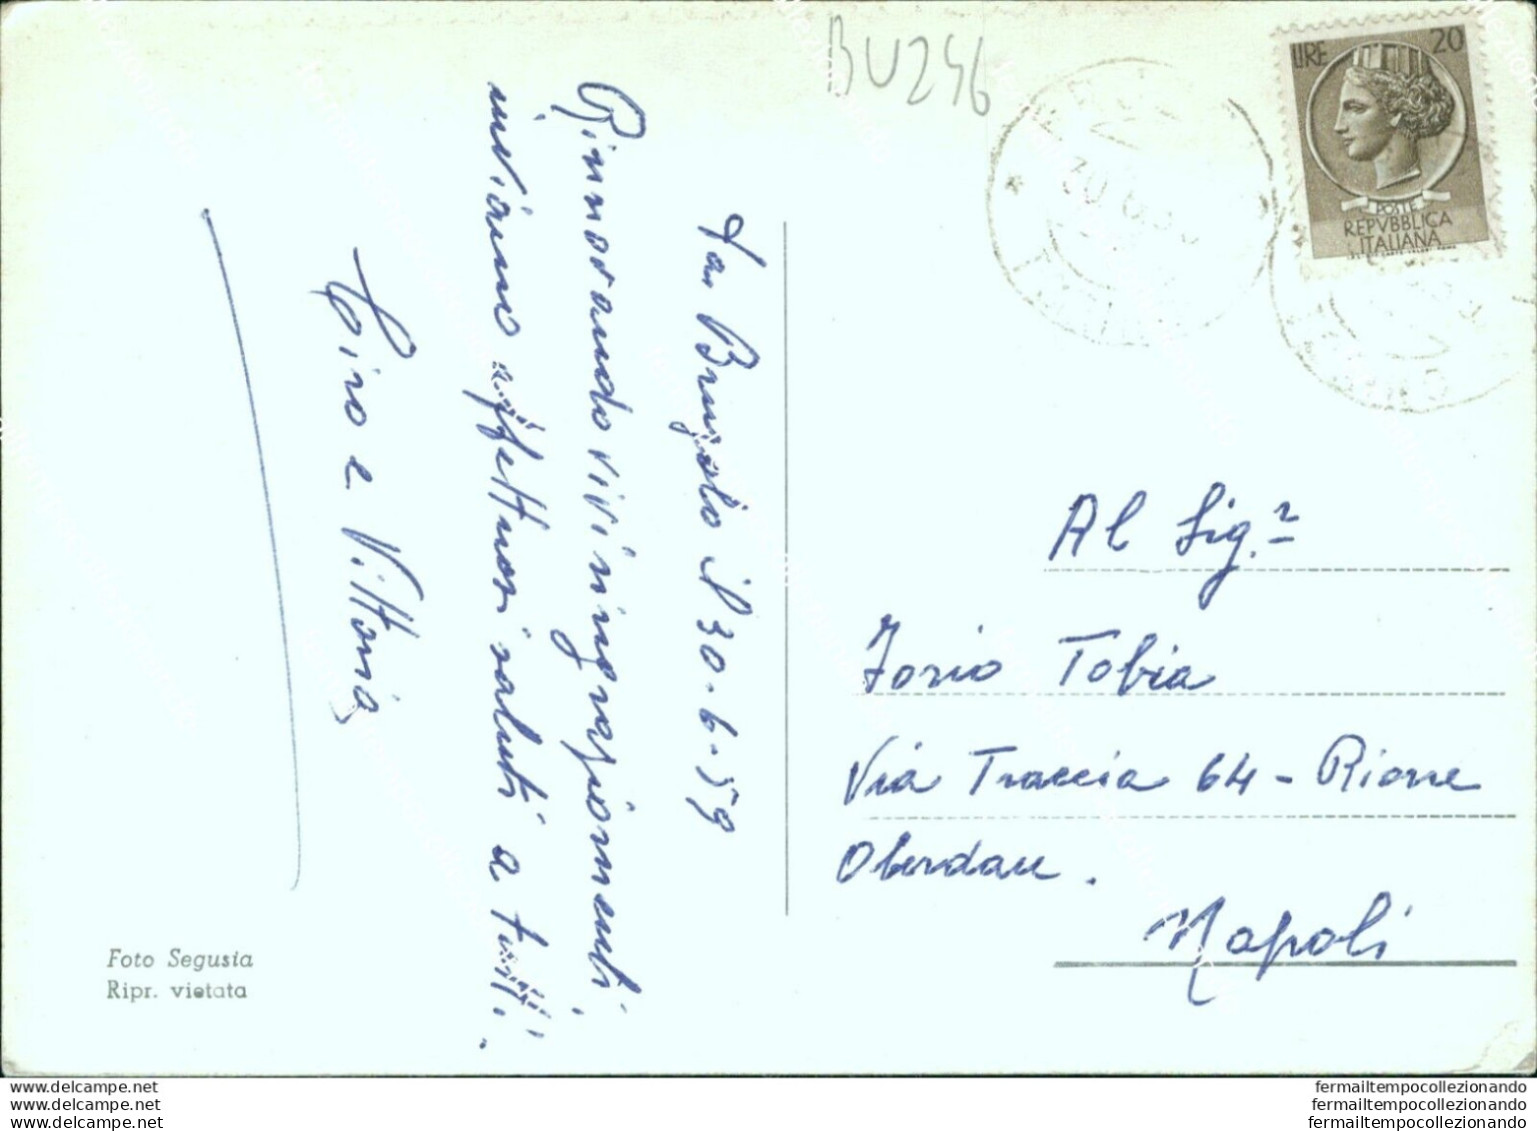 BU246
LIRE 20
POSTE
REPVBBLICA
ITALIANA
San Brugolo il 30-6-59
Rinnovando vivi ringraziamenti,
inviamo affettuosi saluti a tutti.
Ciro e Vittoria
Al Sig.r
Iorio Tobia
Via Traccia 64 - Rione
Oberdan.
Napoli
Foto Segusia
Ripr. vietata
www.delcampe.net
www.delcampe.net
www.delcampe.net
fermailtempocollezionando
fermailtempocollezionando
fermailtempocollezionando